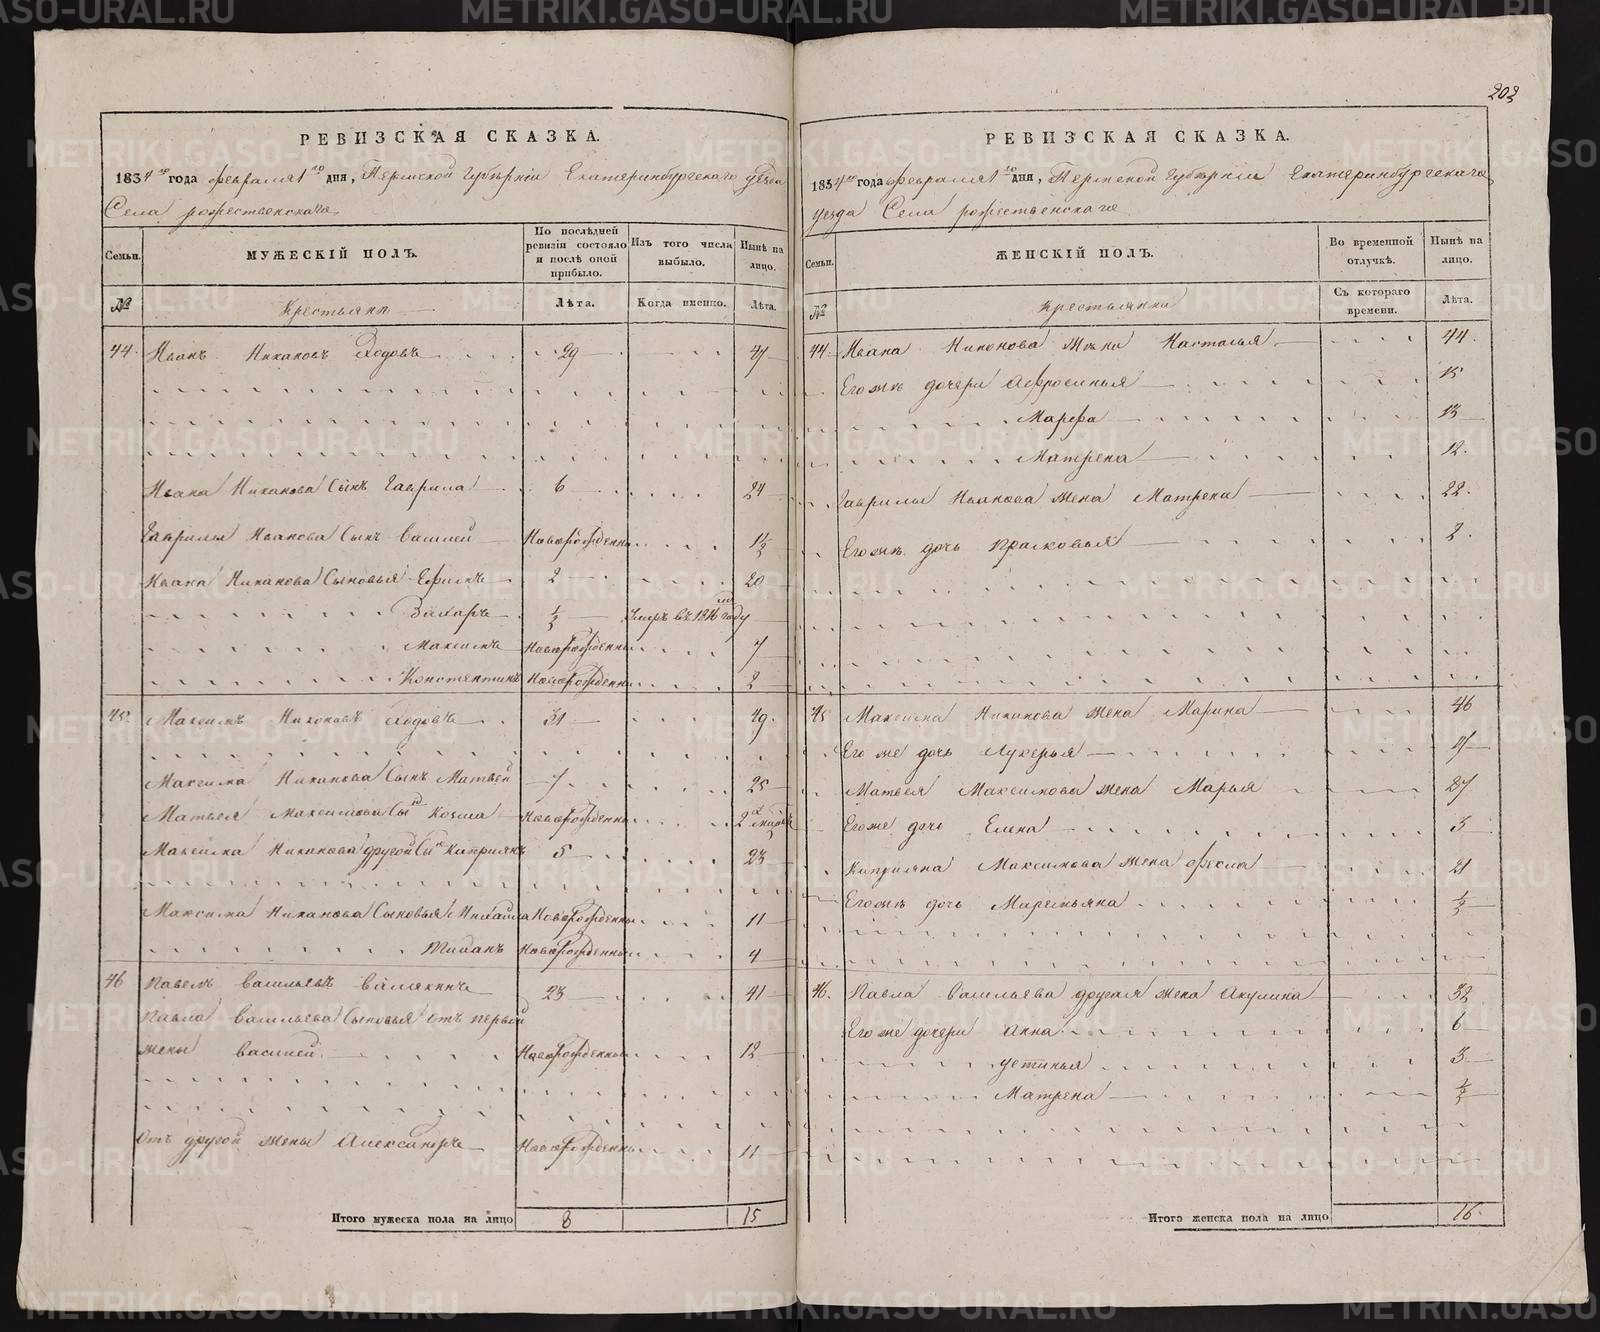 203
РЕВИЗСКАЯ СКАЗКА.
1834го года февраля 1го дня, Пермской Губерніи Екатеринбургскаго уезда
Села рожественскаго
Семьи. МУЖЕСКІЙ ПОЛЪ. По послѣдней ревизіи состояло и послѣ оной прибыло. Изъ того числа выбыло. Нынѣ на лицо.
№ Крестьянъ Лѣта. Когда именно. Лѣта.
44. Иванъ Никановъ Ходовъ 29 47
Ивана Никанова Сынъ Гаврила 6 24
Гаврилы Иванова Сынъ Василей Новорожденны 1½
Ивана Никанова Сыновья Ефимъ 2 20
Захаръ ½ Умеръ въ 1816 году
Максимъ Новорожденны 7
Констентинъ Новорожденны 2
45. Максимъ Никановъ Ходовъ 31 49.
Максима Никанова Сынъ Матвей 7 25
Матвея Максимова Сынъ Козма Новорожденны 2
Максима Никанова другой Сынъ Киприянъ 5 23
Максима Никанова Сыновья Михайла Новорожденны 11
Новорожденны 4
46 Павелъ Васильевъ 23 41
Павла Васильева Сыновья отъ первой
жены Василей Новорожденны 12
Отъ другой жены Александръ Новорожденны 11
Итого мужеска пола на лицо 8 15
РЕВИЗСКАЯ СКАЗКА.
1834го года февраля 1го дня, Пермской Губерніи Екатеринбургскаго
уезда Села рожественскаго
Семьи. ЖЕНСКІЙ ПОЛЪ. Во временной отлучкѣ. Нынѣ на лицо.
№ Крестьянки Съ котораго времени. Лѣта.
44 Ивана Никонова жена Настасья 44.
Егоже дочери Афросинья 15
Марфа 13
Матрена 12.
Гаврилы Иванова жена Матрена 22.
Егоже дочь Прасковья 2.
45 Максима Никанова жена Марина 46
Его же дочь Лукерья 17
Матвея Максимова жена Марья 27
Егоже дочь Елена 3
Киприяна Максимова жена Фесла 21
Егоже дочь Маремьяна ½
46. Павла Васильева другая жена Акулина 32
Его же дочери Анна 6
Устинья 3
Матрена ½
Итого женска пола на лицо 16.
METRIKI.GASO-URAL.RU